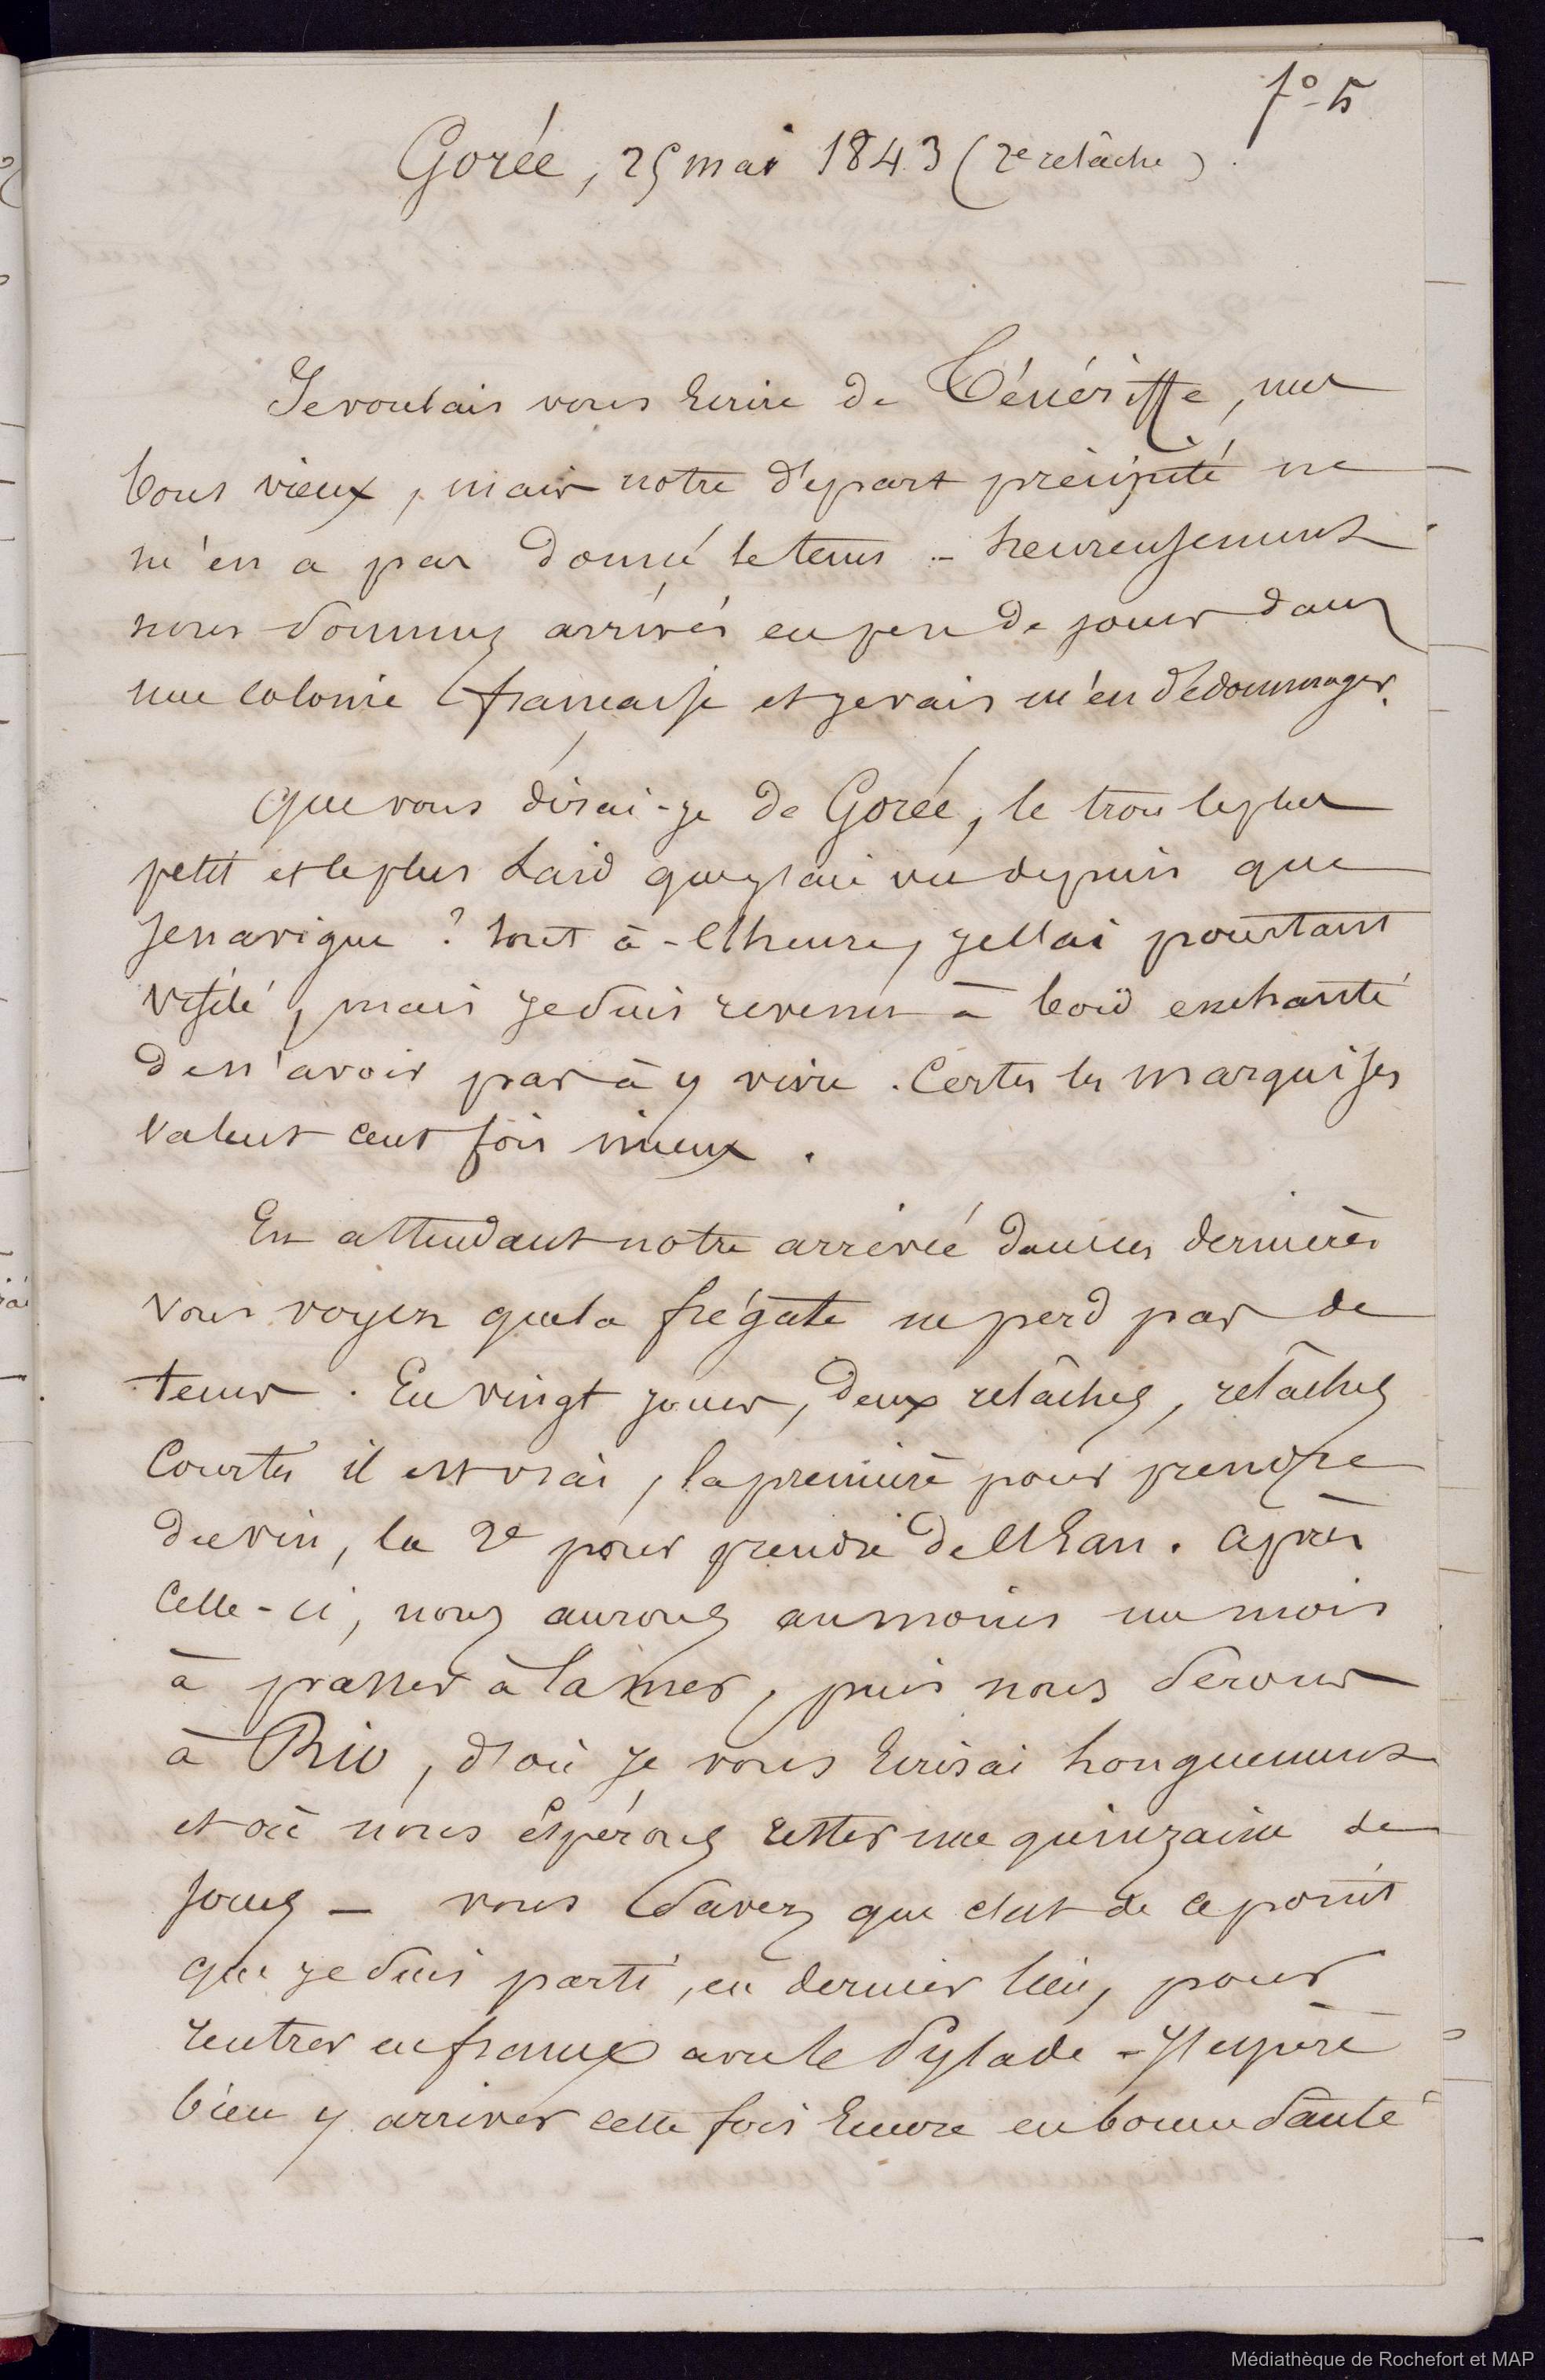 f° 5
Gorée, 25 mai 1843 (2e relâche).
Je voulais vous écrire de Ténériffe, mes
bons vieux, mais notre départ précipité ne
m'en a pas donné le tems - heureusement
nous sommes arrivés en peu de jours dans
une colonie française et je vais m'en dédommager.
Que vous dirai-je de Gorée, le trou le plus
petit et le plus laid que j'aie vu depuis que
je navigue ? tout à l'heure, je l'ai pourtant
visité, mais je suis revenu à bord enchanté
de n'avoir pas à y vivre. Certes les marquises
valent cent fois mieux.
En attendant notre arrivée dans ces dernières
vous voyez que la frégate ne perd pas de
tems. En vingt jours, deux relâches, relâches
courtes il est vrai, la première pour prendre
du vin, la 2e pour prendre de l'eau. Après
celle-ci, nous aurons au moins un mois
à passer à la mer, puis nous serons
à Rio, d'où je vous écrirai longuement
et où nous espérons rester une quinzaine de
jours - vous savez que c'est de ce point
que je suis parti, en dernier lieu, pour
rentrer en france avec le Pylade - J'espère
bien y arriver cette fois encore en bonne santé
Médiathèque de Rochefort et MAP